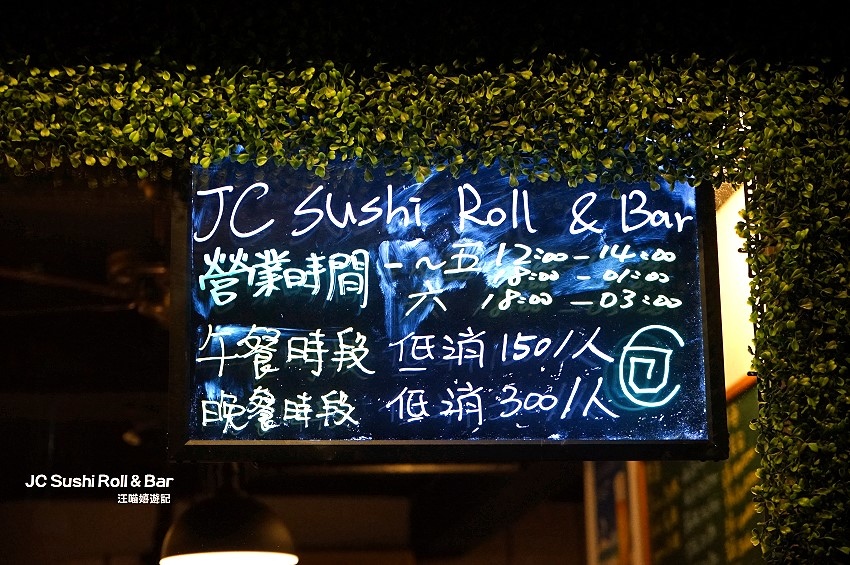 JC Sushi Roll & Bar
營業時間 一~五 12:00-14:00
18:00-01:00
六 18:00-03:00
午餐時段 低消150/人
晚餐時段 低消300/人
JC Sushi Roll & Bar
汪喵嬉遊記